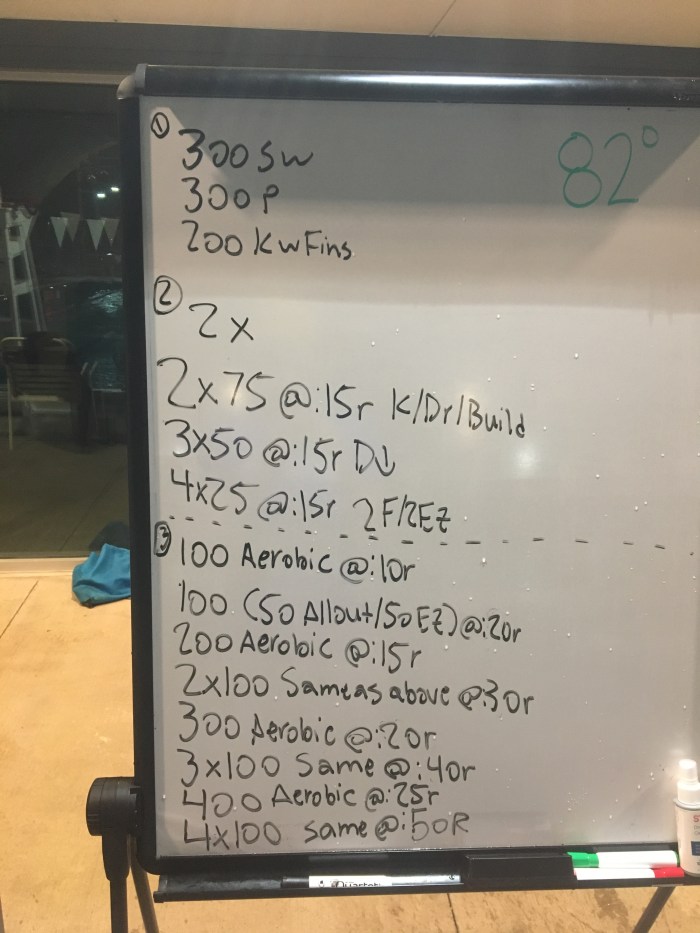 ① 300 Sw
82°
300 P
200 K w Fins
② 2x
2x75 @:15r K/Dr/Build
3x50 @:15r D↓
4x25 @:15r 2F/2Ez
③ 100 Aerobic @:10r
100 (50 Allout/50 Ez) @:20r
200 Aerobic @:15r
2x100 Same as above @:30r
300 Aerobic @:20r
3x100 Same @:40r
400 Aerobic @:25r
4x100 same @:50R
Quartet